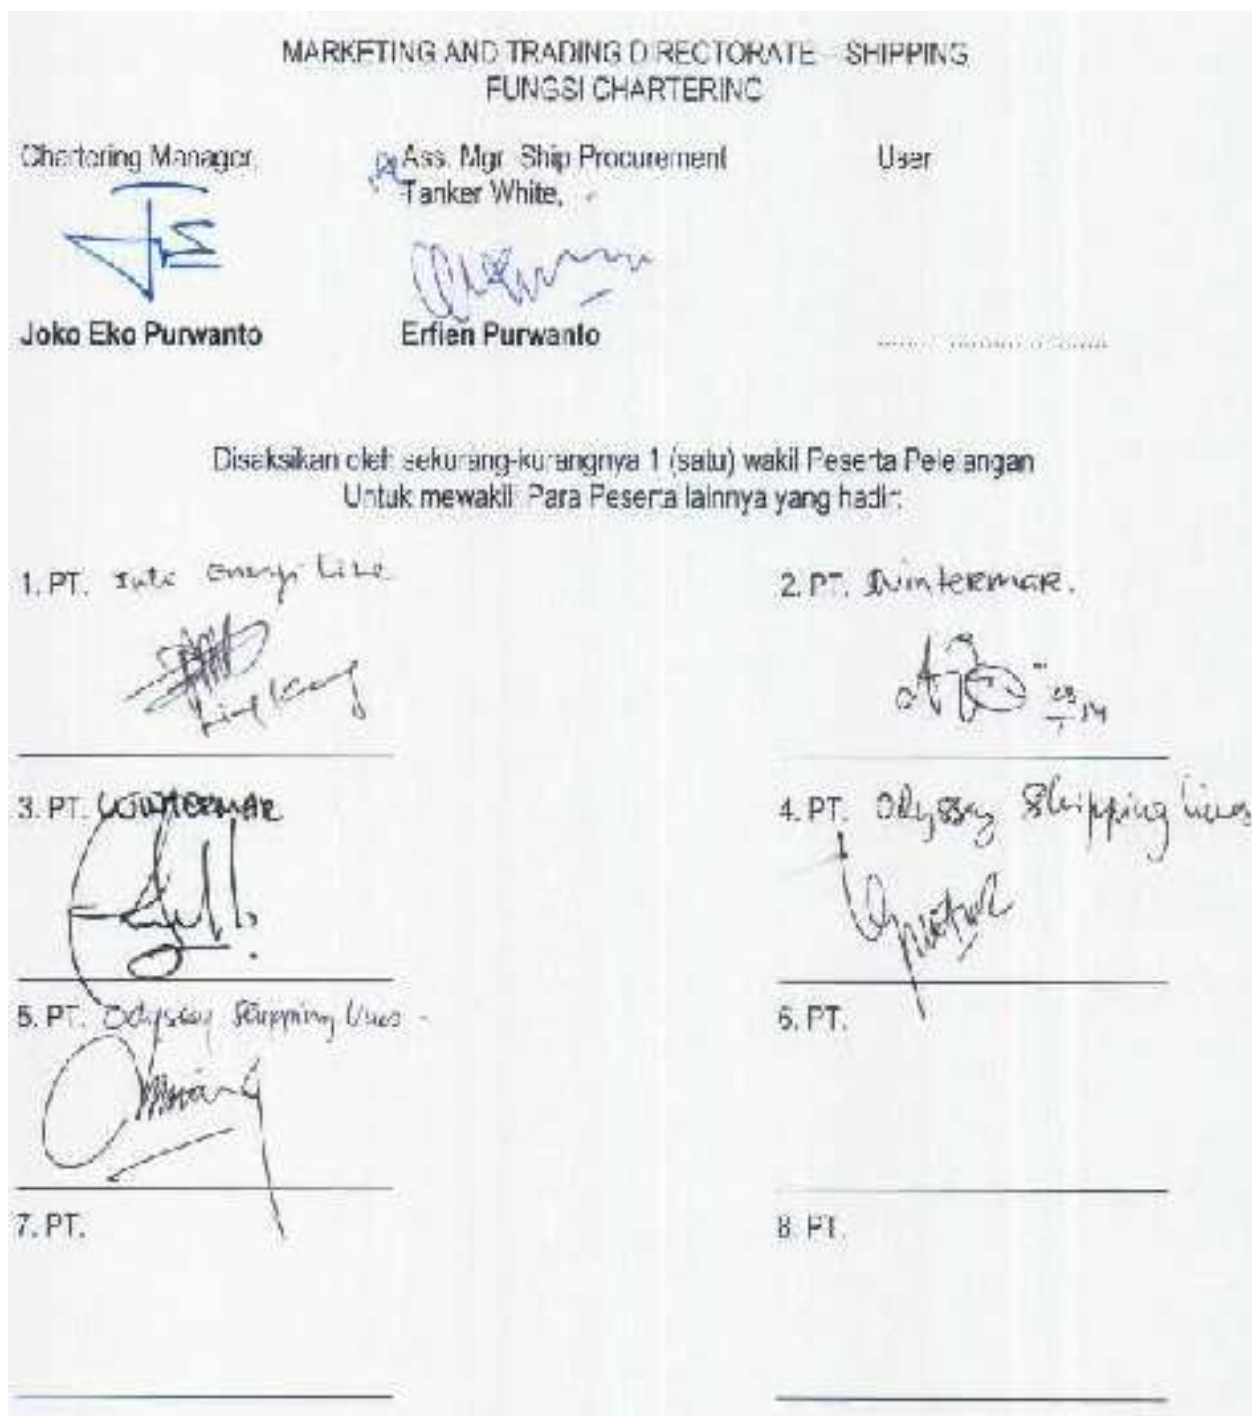 MARKETING AND TRADING DIRECTORATE - SHIPPING
FUNGSI CHARTERING
Chartering Manager,
Ass. Mgr. Ship Procurement
User
Tanker White,
Joko Eko Purwanto
Erfien Purwanto
Disaksikan oleh sekurang-kurangnya 1 (satu) wakil Peserta Pelelangan
Untuk mewakili Para Peserta lainnya yang hadir:
1. PT. Inti Energi Line
2. PT. Wintermar.
3. PT. WINTERMAR
4. PT. Odyssey Shipping Lines
5. PT. Odyssey Shipping Lines
6. PT.
7. PT.
8. PT.